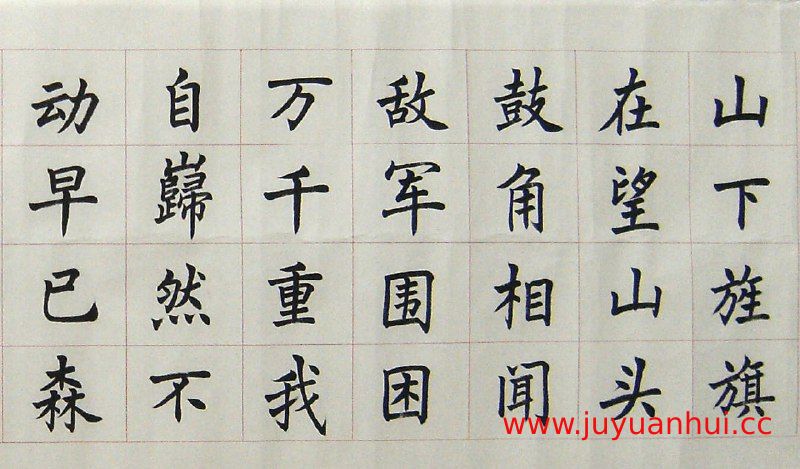 山下旌旗
在望山头
鼓角相闻
敌军围困
万千重我
自巋然不
动早已森
www.juyuanhui.cc